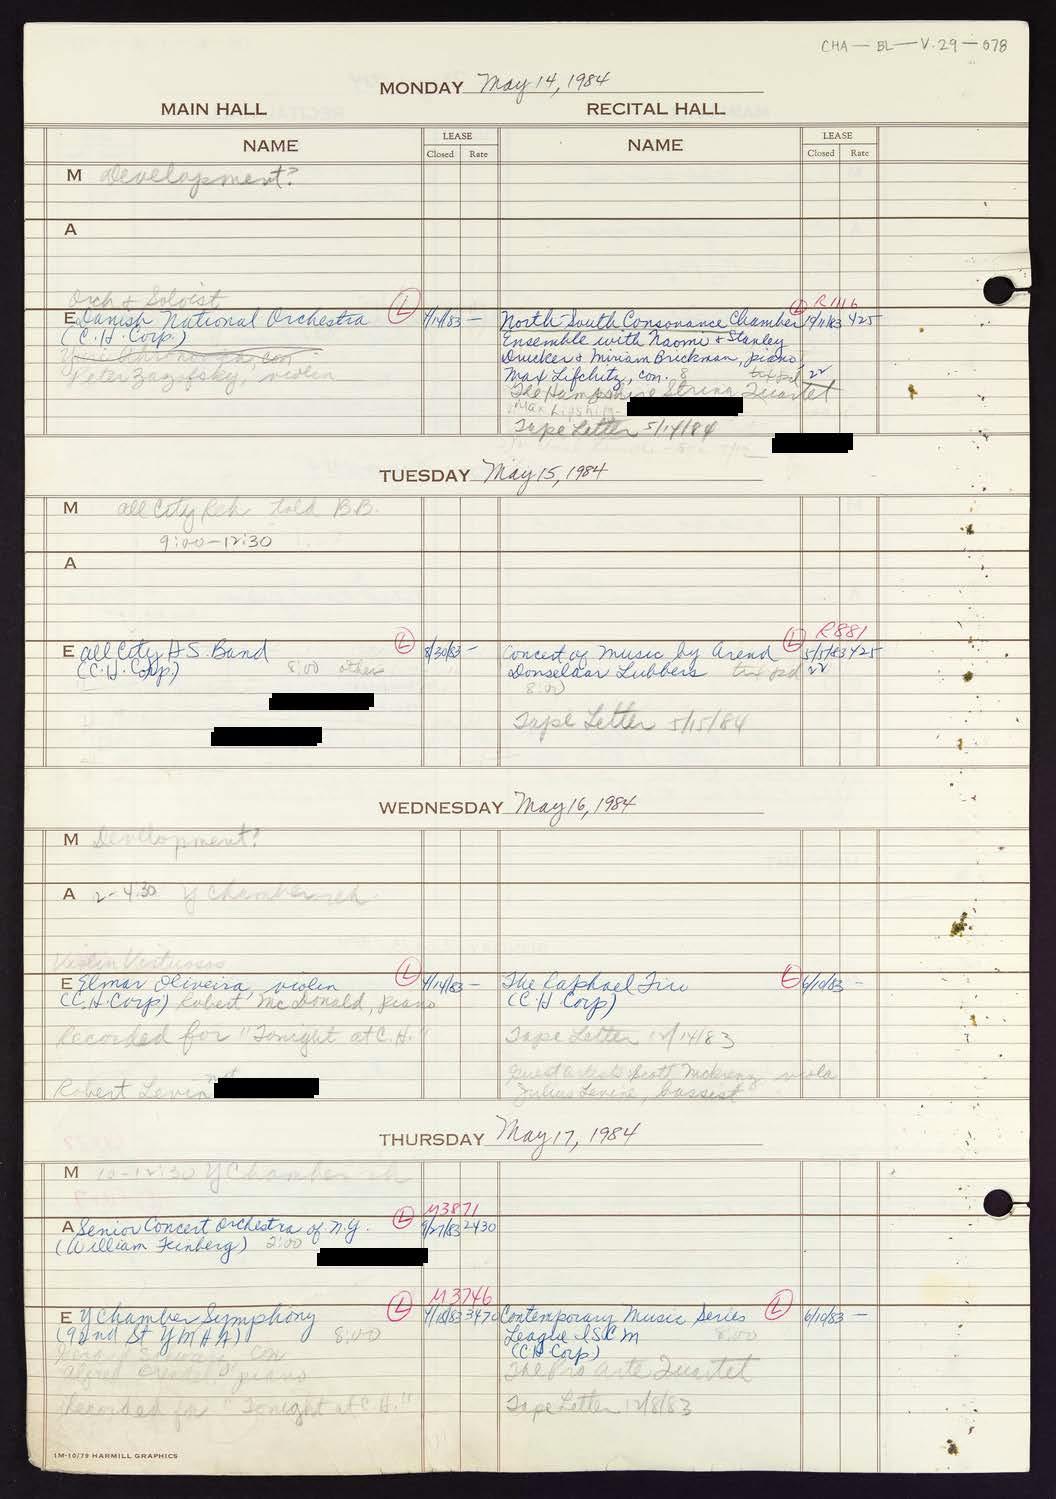 CHA-BL-V.29-078
MONDAY May 14, 1984
MAIN HALL RECITAL HALL
NAME LEASE Closed Rate NAME LEASE Closed Rate
M Development?
A
Orch & Soloist
E Danish National Orchestra (L) 4/14/83 —
(C.H. Corp.)
Peter Zazofsky, violin
R1116
North South Consonance Chamber (L) 425
Ensemble with Naomi & Stanley
Drucker & Miriam Brickman, piano
Max Lifchitz, con. 8 txt pd 22
The Hampshire String Quartet
Max Lifshitz-
Tape Letter 5/14/84
TUESDAY May 15, 1984
M All City Reh told B.B.
9:00-12:30
A
E All City H S. Band (L) 8/30/83 —
(C.H. Corp.) 8:00 others
R881
Concert of Music by Arend (L) 5/5/83 425
Donselaar Lubbers txt pd 22
8:00
Tape Letter 5/15/84
WEDNESDAY May 16, 1984
M Development?
A 2-4:30 Y Chamber reh.
Violin Virtuosos
E Elmar Oliveira, violin (L) 4/14/83 —
(C.H. Corp) Robert McDonald, piano
Recorded for "Tonight at C.H."
Robert Levin not
The Raphael Trio (L) 6/10/83 —
(C H Corp)
Tape Letter 12/14/83
guest artists Scott viola
Julius Levine, bassist
THURSDAY May 17, 1984
M 10-12:30 Y Chamber reh
M3871
A Senior Concert Orchestra of N.Y. (L) 9/27/83 2430
(William Feinberg) 2:00
M3746
E Y Chamber Symphony (L) 4/18/83 3470
(92nd St YMHA) 8:00
con
Alfred Brendel, piano
Recorded for "Tonight at C.H."
Contemporary Music Series (L) 6/10/83 —
League ISCM 8:00
(C H Corp)
The Pro Arte Quartet
Tape Letter 12/8/83
1M-10/79 HARMILL GRAPHICS